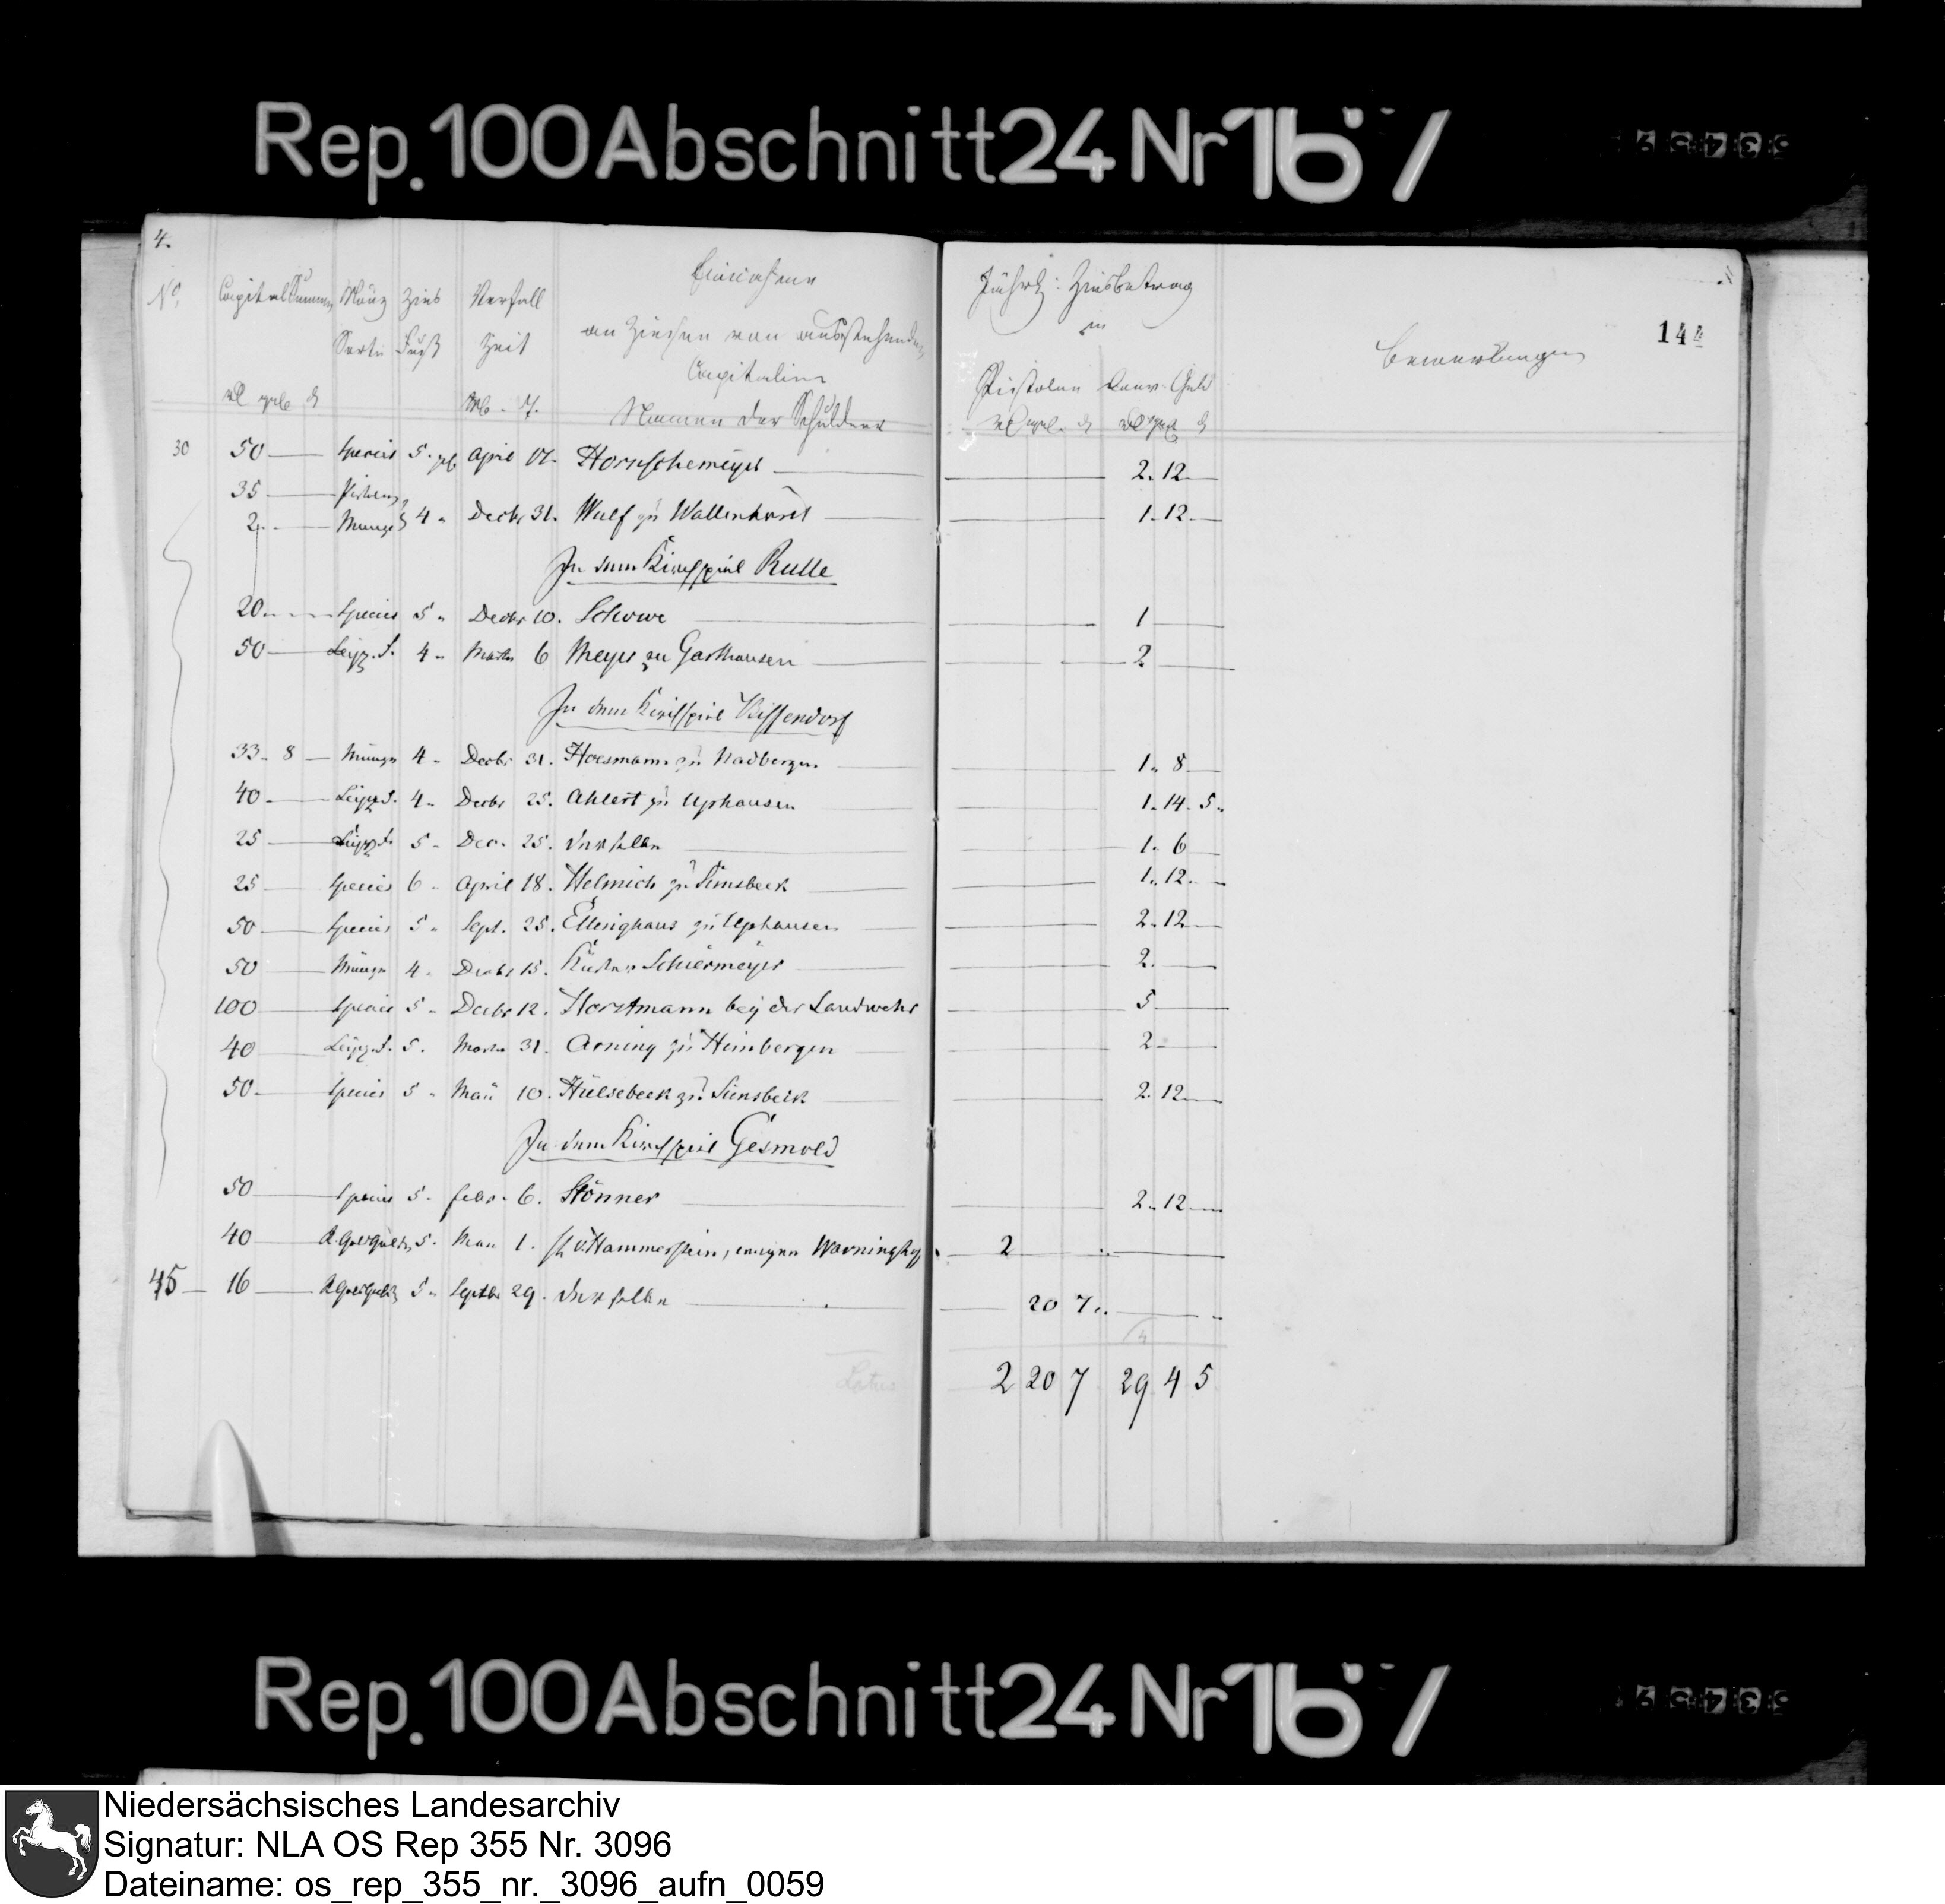 Rep.100Abschnitt24Nr167
4.
144
No. Capital Summen Münz Zins Verfall Einnahme Jährl: Zinsbetrag
Sorte Fuß Zeit an Zinsen von ausstehenden in Bemerkungen
Capitalien Pistolen Conv. Geld
Namen der Schuldner
30 50 Species 5. April 17. Hornschemeyer 2. 12
35 Pistolen
2 Münze 4 Decbr 31. Wulf zu Wallenhorst 1. 12
In dem Kirchspiel Rulle
20 Species 5 Decbr 10. Schowe 1
50 Leipz. S. 4 Martii 6 Meyer zu Garthausen 2
In dem Kirchspiel Bissendorf
33. 8 Münze 4 Decbr 31. Hoesmann zu Nadbergen 1. 8
40 Leipz. S. 4 Decbr 25. Ahlert zu Uphausen 1. 14. 5
25 Leipz. S. 5 Dec. 25. derselbe 1. 6
25 Species 6 April 18. Helmich zu Linsbeck 1. 12.
50 Species 5 Sept. 25. Ellinghaus zu Uphausen 2. 12
50 Münze 4 Decbr 15. Küster Schiermeyer 2.
100 Species 5 Decbr 12. Horstmann bey der Landwehr 5
40 Leipz. S. 5. Martii 31. Arning zu Himbergen 2
50 Species 5 Maii 10. Hülsebeck zu Linsbeck 2. 12
In dem Kirchspiel Gesmold
50 Species 5 Febr. 6. Stönner 2. 12
40 R. Goldgulden 5. Maii 1. v. Hammerstein, wegen Warninghof 2
45 16 R Goldgulden 5 Septbr 29. derselbe 20 7
Latus 2 20 7 29 4 5
Rep.100Abschnitt24Nr167
Niedersächsisches Landesarchiv
Signatur: NLA OS Rep 355 Nr. 3096
Dateiname: os_rep_355_nr._3096_aufn_0059